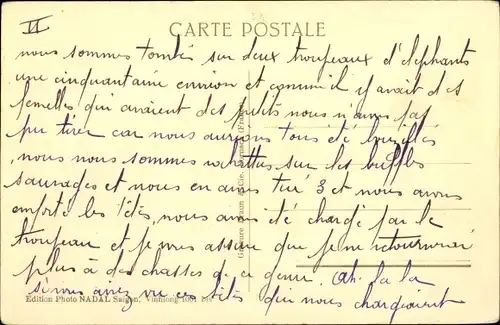 VI
CARTE POSTALE
nous sommes tombé sur deux troupeaux d'elephants
une cinquantaine environ et comme il y avait des
femelles qui avaient des petits nous n'avons pas
pu tirer car nous aurions tous été
nous nous sommes rabattus sur les buffles
sauvages et nous en avons tué 3 et nous avons
emporté les têtes, nous avons été chargé par le
troupeau et je vous assure que je ne retournerai
plus à des chasses de ce genre. Ah. la la
si vous aviez vu ces bêtes qui nous chargeaient
Edition Photo NADAL Saigon.